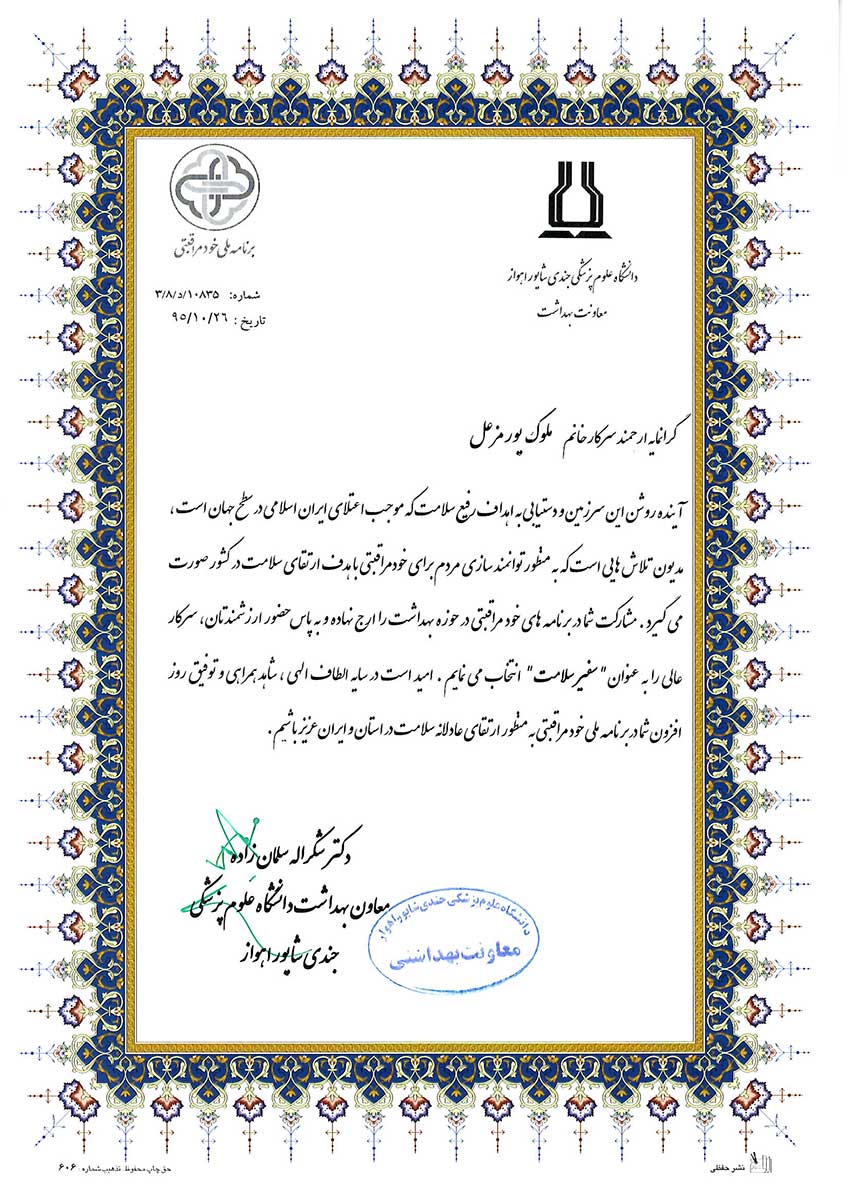 برنامه ملی خود مراقبتی
شماره: ۳/۸/د/۱۰۸۳۵
تاریخ: ۹۵/۱۰/۲۶
دانشگاه علوم پزشکی جندی شاپور اهواز
معاونت بهداشت
گرانمایه ارجمند سرکار خانم ملوک پور مزعل
آینده روشن این سرزمین و دستیابی به اهداف رفیع سلامت که موجب اعتلای ایران اسلامی در سطح جهان است ،
مدیون تلاش هایی است که به منظور توانمند سازی مردم برای خودمراقبتی با هدف ارتقای سلامت در کشور صورت
می گیرد . مشارکت شما در برنامه های خود مراقبتی در حوزه بهداشت را ارج نهاده و به پاس حضور ارزشمندتان، سرکار
عالی را به عنوان "سفیر سلامت" انتخاب می نمایم . امید است در سایه الطاف الهی ، شاهد همراهی و توفیق روز
افزون شما در برنامه ملی خود مراقبتی به منظور ارتقای عادلانه سلامت در استان و ایران عزیز باشیم .
دکتر شکراله سلمان زاده
معاون بهداشت دانشگاه علوم پزشکی
جندی شاپور اهواز
دانشگاه علوم پزشکی جندی شاپور اهواز
معاونت بهداشتی
حق چاپ محفوظ. تذهیب شماره: ۶۰۶
نشر حفظی